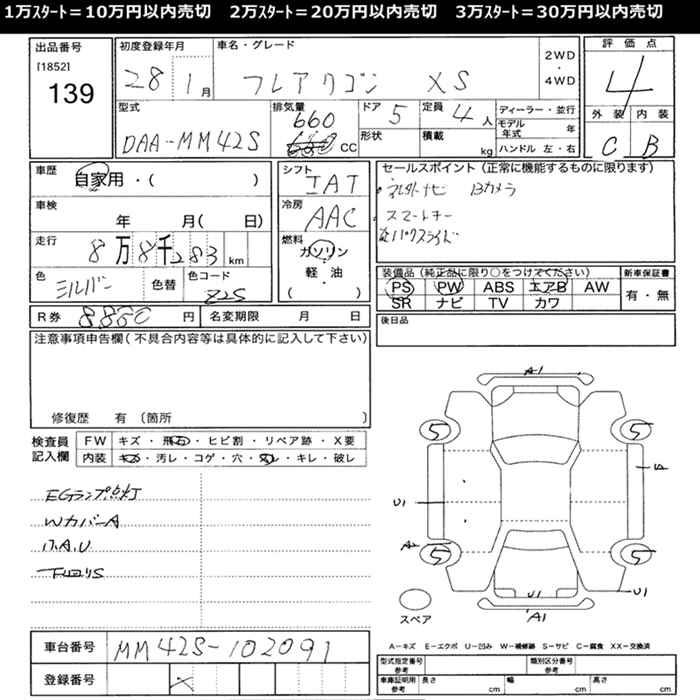 1万ｽﾀｰﾄ＝10万円以内売切　2万ｽﾀｰﾄ＝20万円以内売切　3万ｽﾀｰﾄ＝30万円以内売切
出品番号
[1852]
139
初度登録年月
28 1月
車名・グレード
フレアワゴン XS
2WD
・
4WD
評価点
4
外装 内装
C B
型式
DAA-MM42S
排気量
660
CC
ドア 5
形状
定員 4人
積載 kg
ディーラー・並行
モデル年式 年
ハンドル 左・右
車歴
自家用・( )
車検
年 月( 日)
走行
8万8千283 km
色
シルバー
色替
色コード
Z2S
シフト
IAT
冷房
AAC
燃料
ガソリン
軽・油
( )
セールスポイント（正常に機能するものに限ります）
Bカメラ
スマートキー
パワスライド
装備品（純正品に限り○をつけてください）
PS PW ABS エアB AW
SR ナビ TV カワ
新車保証書
有・無
後日品
R券 8860 円
名変期限 月 日
注意事項申告欄（不具合内容等は具体的に記入して下さい）
修復歴 有〔箇所 〕
検査員
記入欄
FW キズ・飛石・ヒビ割・リペア跡・X要
内装 キズ・汚レ・コゲ・穴・スレ・キレ・破レ
EGランプ点灯
WカバーA
小A.U
下回りS
A1
5
5
U1
A2
5
5
U1
U1
A1
スペア
A－キズ E－エクボ U－凹み W－補修跡 S－サビ C－腐食 XX－交換済
車台番号
MM42S-102091
登録番号
型式指定番号
参考
類別区分番号
参考
車庫証明用
参考
長さ cm
幅 cm
高さ cm